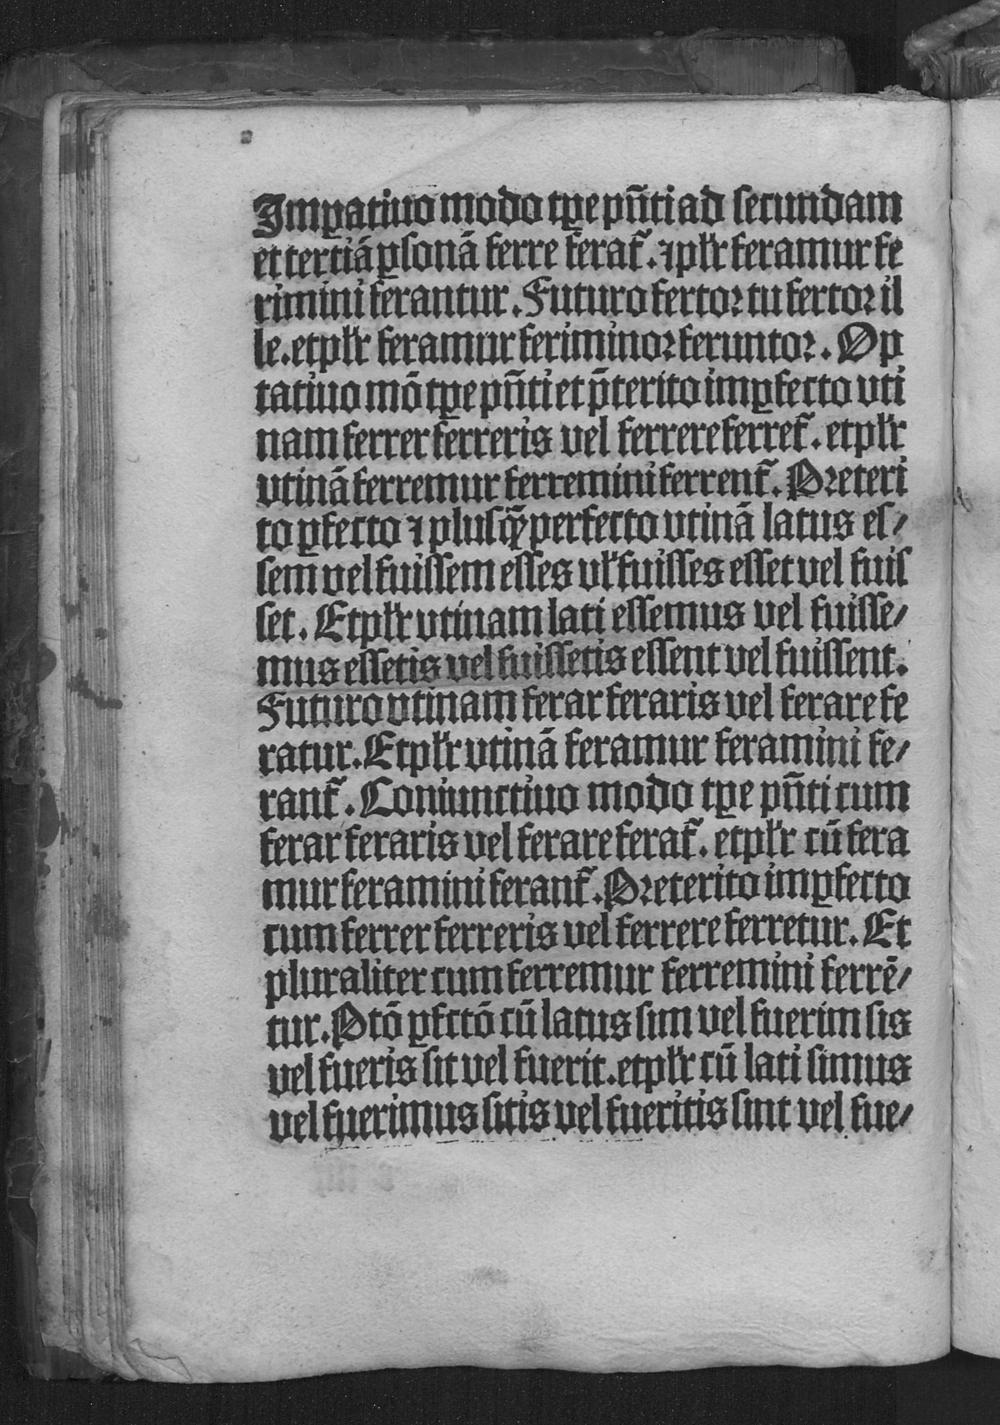 Imꝑatiuo modo tꝑe pñti ad ſecundam
et tertiã ꝑſonã ferre ferat᷑. ⁊ pl'r feramur fe
rimini ferantur. Futuro fertoꝛ tu fertoꝛ il
le. et pl'r feramur feriminoꝛ feruntoꝛ. Op
tatiuo mõ tꝑe pñti et p̃terito imꝑfecto vti
nam ferrer ferreris vel ferrere ferret᷑. et pl'r
vtinã ferremur ferremini ferrent᷑. Pꝛeteri
to ꝑfecto ⁊ pluſꝙ̃perfecto vtinã latus eſ/
ſem vel fuiſſem eſſes vl' fuiſſes eſſet vel fuiſ
ſet. Et pl'r vtinam lati eſſemus vel fuiſſe/
mus eſſetis vel fuiſſetis eſſent vel fuiſſent.
Futuro vtinam ferar feraris vel ferare fe
ratur. Et pl'r vtinã feramur feramini fe/
rant᷑. Coniunctiuo modo tꝑe pñti cum
ferar feraris vel ferare ferat᷑. et pl'r cũ fera
mur feramini ferant᷑. Pꝛeterito imꝑfecto
cum ferrer ferreris vel ferrere ferretur. Et
pluraliter cum ferremur ferremini ferrẽ/
tur. Ptõ ꝑfctõ cũ latus ſim vel fuerim ſis
vel fueris ſit vel fuerit. et pl'r cũ lati ſimus
vel fuerimus ſitis vel fueritis ſint vel fue/